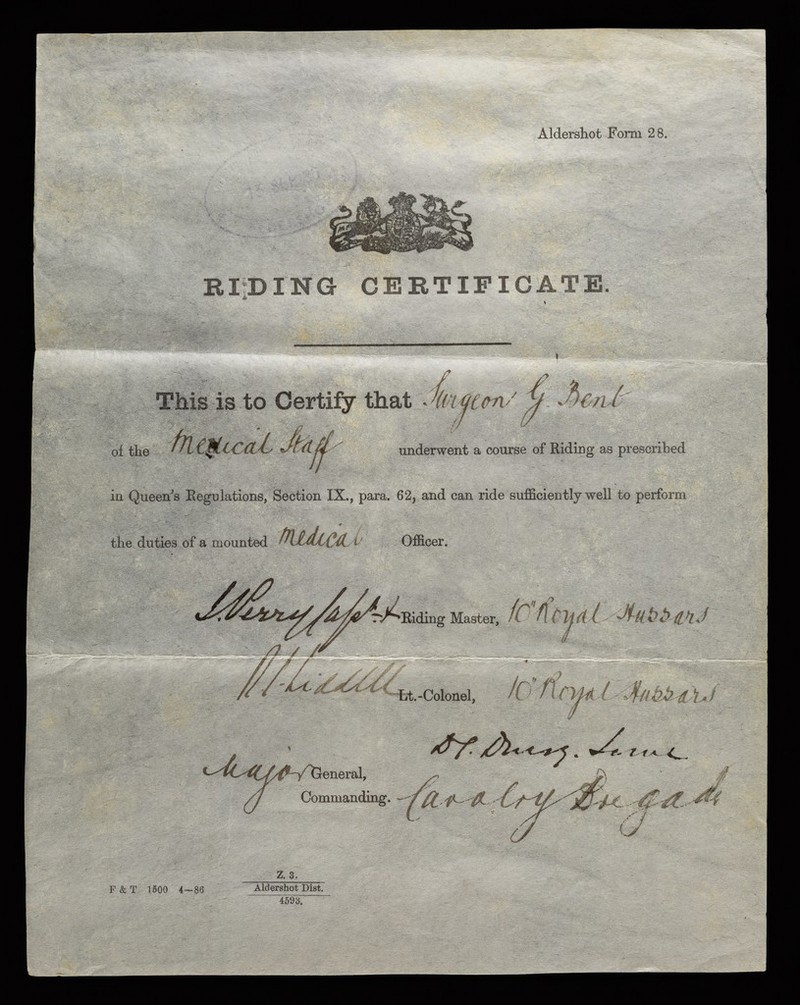 Aldershot Form 28.
RIDING CERTIFICATE.
This is to Certify that Surgeon G. Bent
of the Medical Staff underwent a course of Riding as prescribed
in Queen's Regulations, Section IX., para. 62, and can ride sufficiently well to perform
the duties of a mounted medical Officer.
Capt. & Riding Master, 10th Royal Hussars
Liddell Lt.-Colonel, 10th Royal Hussars
D.C. Drury. Lowe
Major General,
Commanding. Cavalry Brigade
F & T 1500 4—86
Z. 3.
Aldershot Dist.
4593.